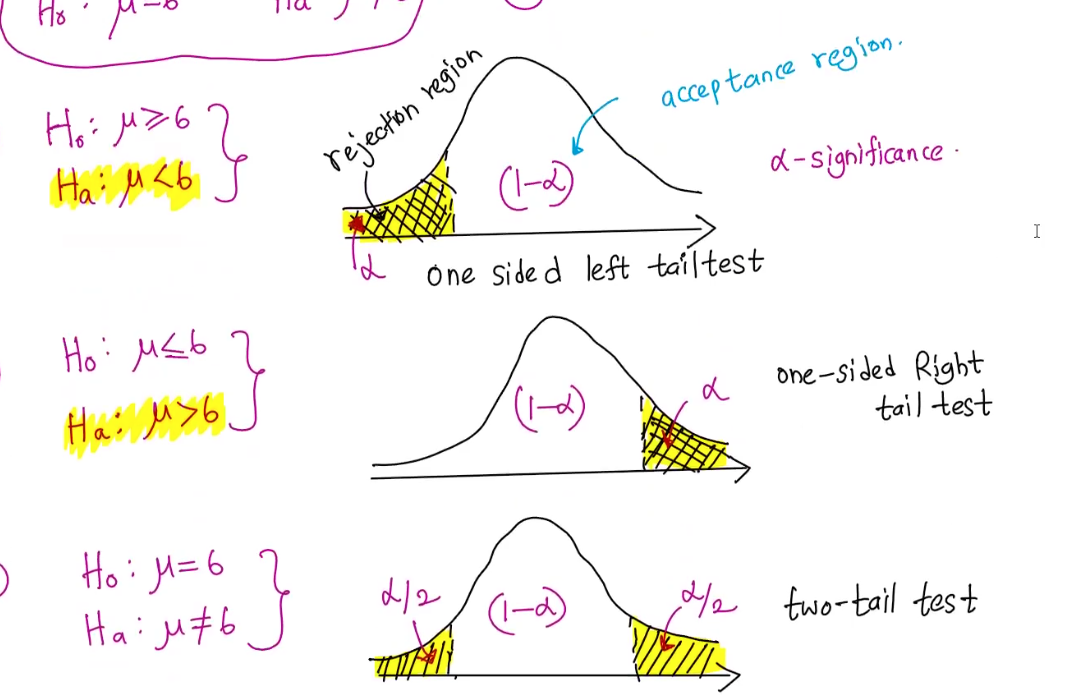 rejection region
acceptance region.
H₀: μ≥6
Ha: μ<6
(1-α)
α-significance.
α
one sided left tail test
H₀: μ≤6
Ha: μ>6
(1-α)
α
one-sided Right
tail test
H₀: μ=6
Ha: μ≠6
α/2
(1-α)
α/2
two-tail test